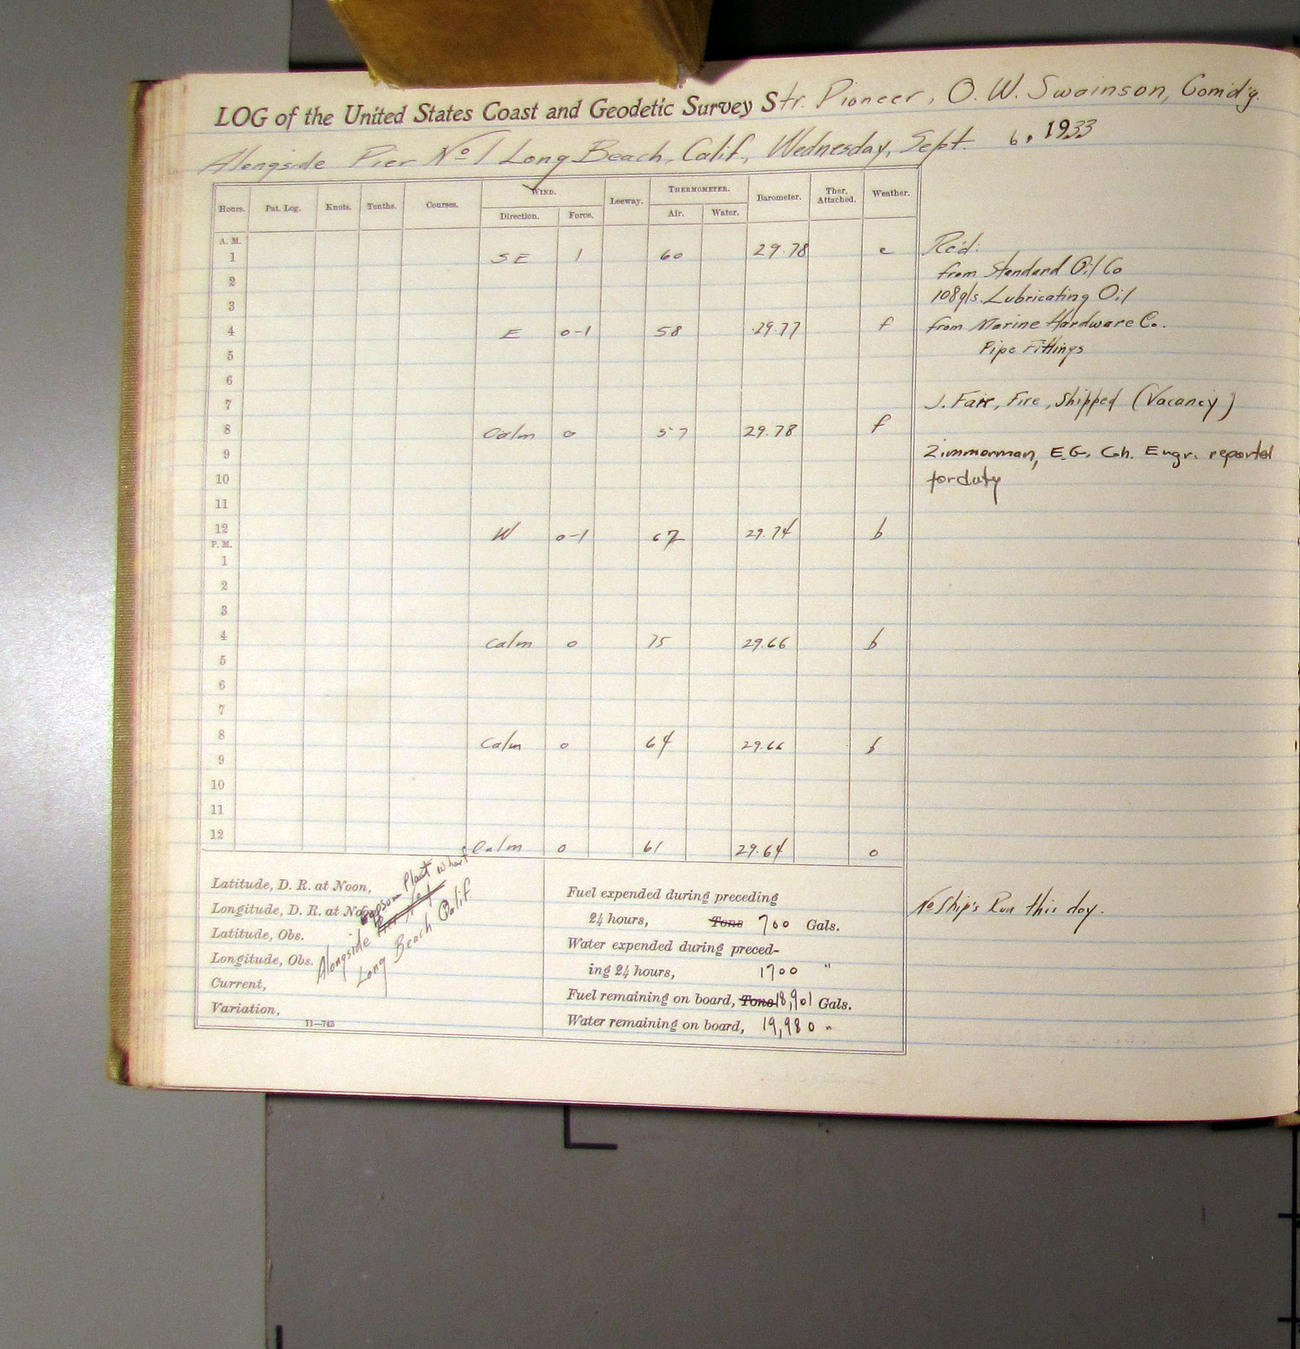 LOG of the United States Coast and Geodetic Survey Str. Pioneer, O. W. Swainson, Com'd'g.
Alongside Pier No 1 Long Beach, Calif., Wednesday, Sept. 6, 1933
Hours. Pat. Log. Knots. Tenths. Courses. WIND. Direction. Force. Leeway. THERMOMETER. Air. Water. Barometer. Ther. Attached. Weather.
A. M.
1 SE 1 60 29.78 c
2
3
4 E 0-1 58 29.77 f
5
6
7
8 Calm 0 57 29.78 f
9
10
11
12 W 0-1 67 29.74 b
P. M.
1
2
3
4 Calm 0 75 29.66 b
5
6
7
8 Calm 0 64 29.66 b
9
10
11
12 Calm 0 61 29.64 o
Rec'd:
from Standard Oil Co
108 gls. Lubricating Oil
from Marine Hardware Co.
Pipe Fittings
J. Fair, Fire, Shipped (Vacancy)
Zimmerman, E.G. Ch. Engr. reported
for duty
No Ship's Run this day.
Latitude, D. R. at Noon,
Longitude, D. R. at Noon,
Latitude, Obs.
Longitude, Obs.
Current,
Variation,
Alongside Gypsum Plant Wharf
Long Beach Calif
11—763
Fuel expended during preceding
24 hours, Tons 700 Gals.
Water expended during preced-
ing 24 hours, 1700 "
Fuel remaining on board, Tons 18,901 Gals.
Water remaining on board, 19,980 "